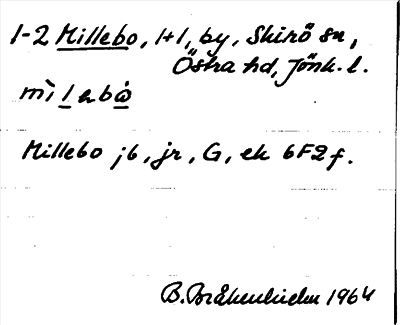 1-2 Millebo, 1+1, by, Skirö sn,
Östra hd, Jönk. l.
mìlɘbω̇
Millebo jb, jr, G, ek 6F2f.
B. Bråkenhielm 1964